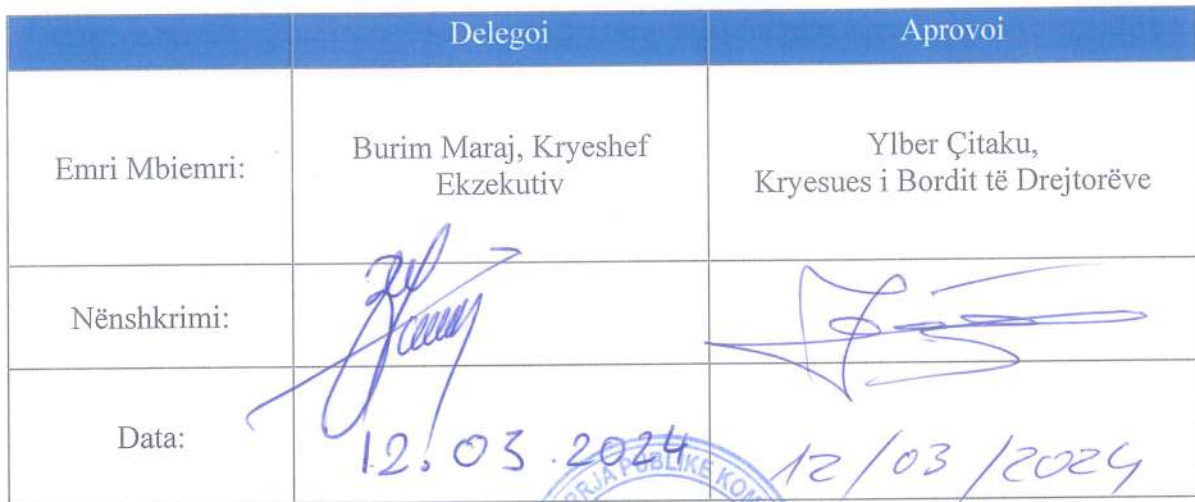 Delegoi
Aprovoi
Emri Mbiemri:
Burim Maraj, Kryeshef
Ekzekutiv
Ylber Çitaku,
Kryesues i Bordit të Drejtorëve
Nënshkrimi:
Data:
12.03.2024
12/03/2024
PUBLIKE